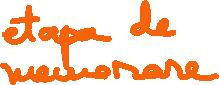 etapa de
memorare